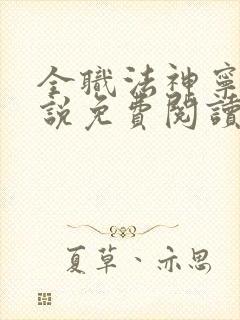 全職法神寧
說免費閱讀
夏草、亦思